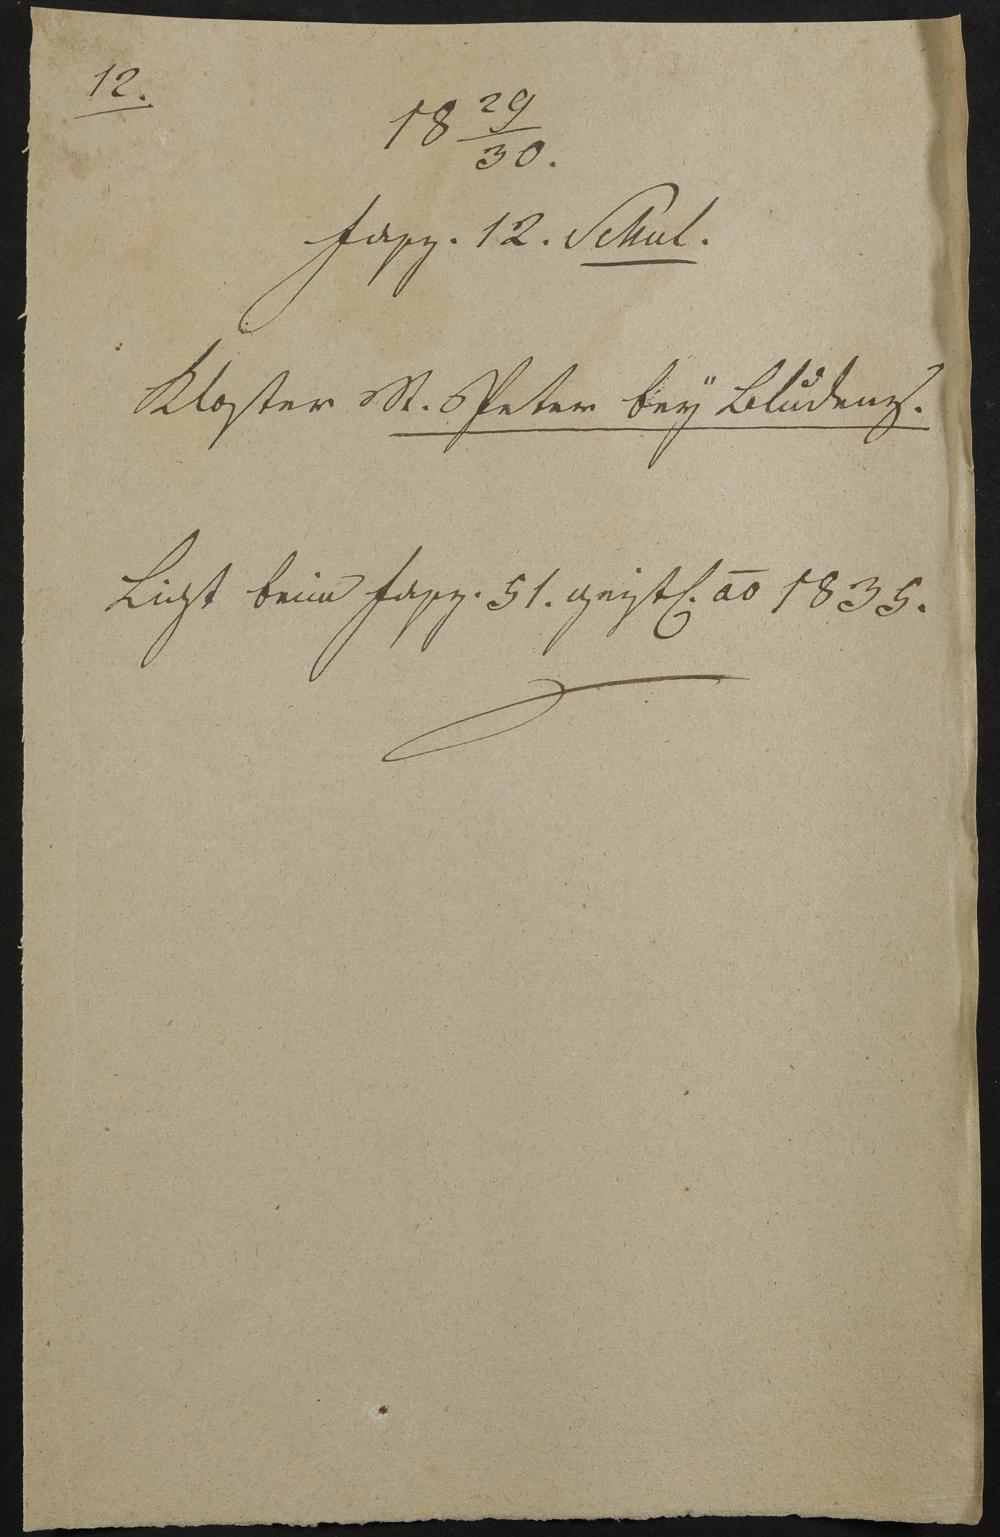 12.
18 29/30.
Fasz. 12. Schul.
Kloster St. Peter beÿ Bludenz.
Ligt beim Fasz. 51. geistl. ao 1835.